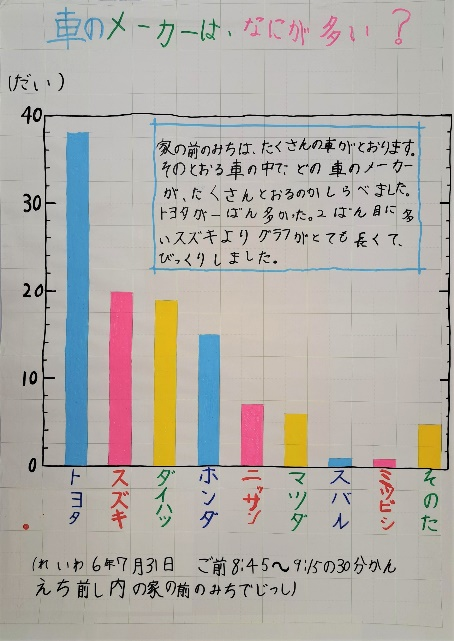 車のメーカーは、なにが多い？
(だい)
40
家の前のみちは、たくさんの車がとおります。
そのとおる車の中で、どの車のメーカー
が、たくさんとおるのかしらべました。
トヨタが一ばん多かった。2ばん目に多
いスズキよりグラフがとても長くて、
びっくりしました。
30
20
10
0
トヨタ
スズキ
ダイハツ
ホンダ
ニッサン
マツダ
スバル
ミツビシ
そのた
(れいわ6年7月31日 ご前8:45〜9:15の30分かん
えち前し内の家の前のみちでじっし)